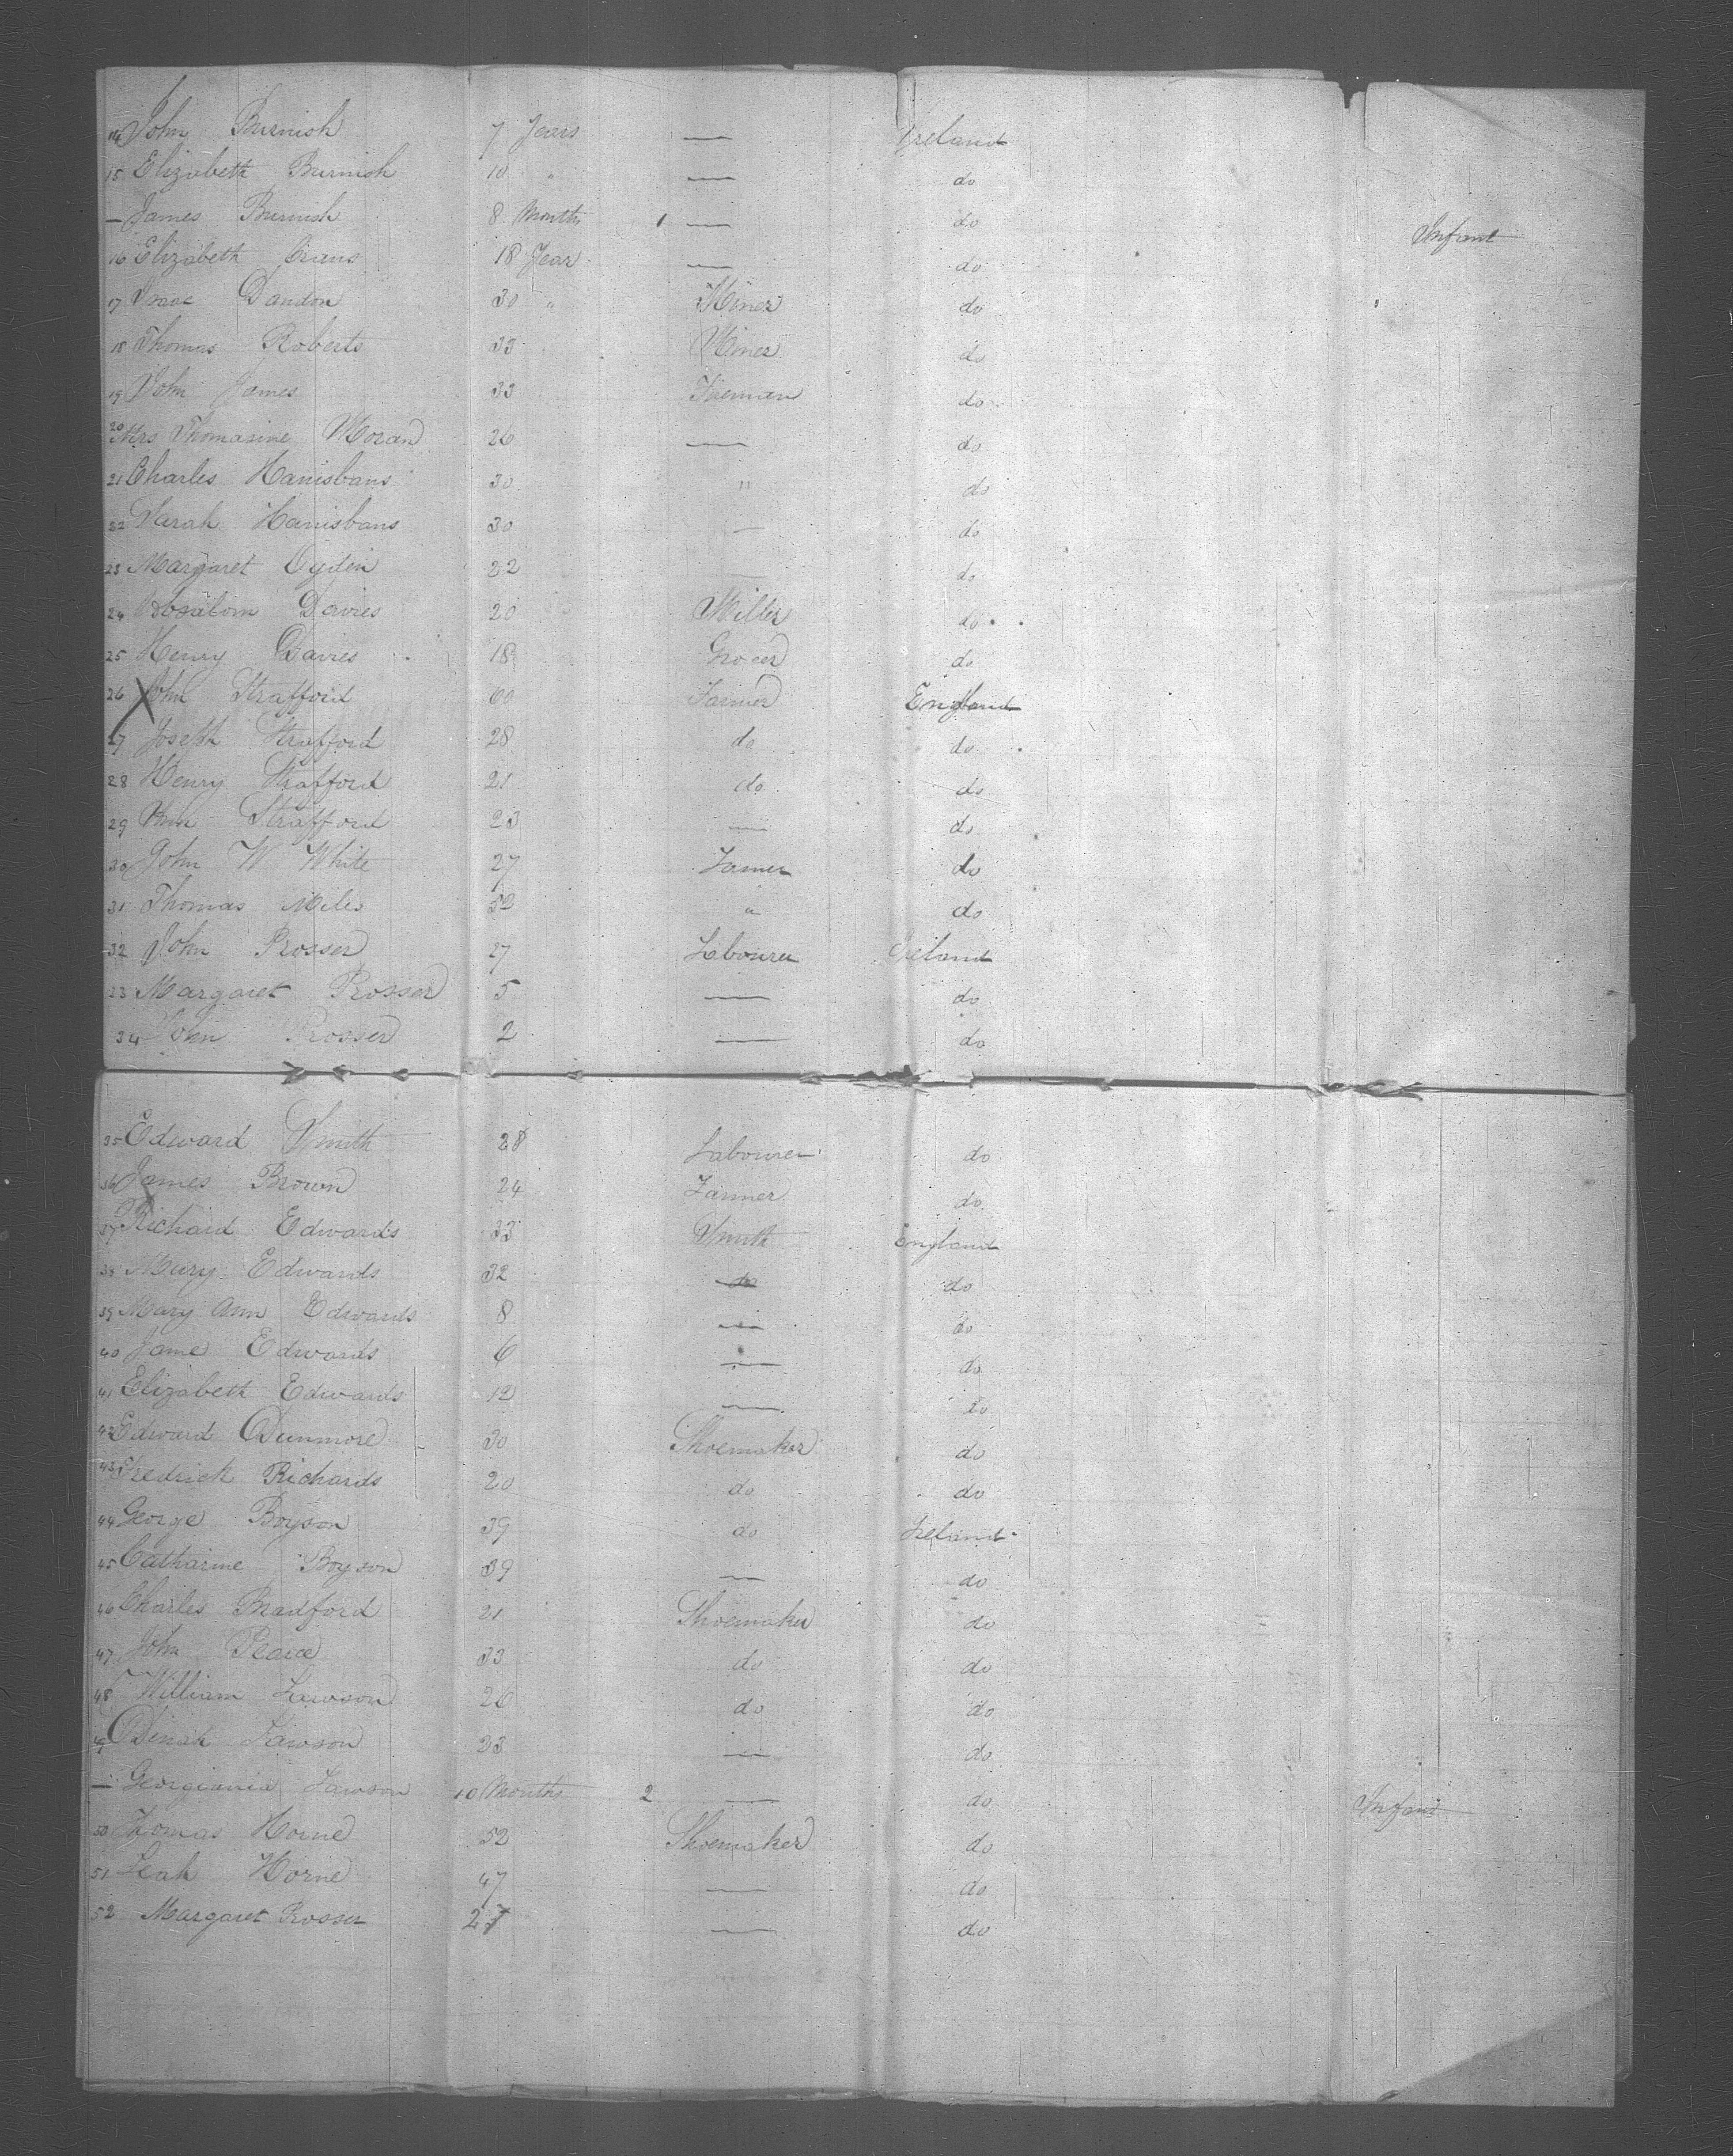 14 John Burnish 7 Years — Ireland
15 Elizabeth Burnish 10 " — do
— James Burnish 8 Months 1 — do Infant
16 Elizabeth Crans 18 Year — do
17 Isaac Dandon 30 " Miner do
18 Thomas Roberts 33 Miner do
19 John James 33 Fireman do
20 Mrs Thomasine Moran 26 — do
21 Charles Hanisbans 30 " do
22 Sarah Hanisbans 30 — do
23 Margaret Ogden 22 — do
24 Absalom Davies 20 Miller do
25 Henry Davies 18 Grocer do
26 John Strafford 60 Farmer England
27 Joseph Strafford 28 do do
28 Henry Strafford 21 do do
29 Ann Strafford 23 — do
30 John W White 27 Farmer do
31 Thomas Miles 52 " do
32 John Prosser 27 Labourer Ireland
33 Margaret Prosser 5 — do
34 John Prosser 2 — do
35 Edward Smith 28 Labourer do
36 James Brown 24 Farmer do
37 Richard Edwards 33 Smith England
38 Mary Edwards 32 do do
39 Mary Ann Edwards 8 — do
40 Jame Edwards 6 — do
41 Elizabeth Edwards 12 — do
42 Edward Dunmore 30 Shoemaker do
43 Fredrick Richards 20 do do
44 George Boyson 39 do Ireland
45 Catharine Boyson 39 — do
46 Charles Bradford 21 Shoemaker do
47 John Pearce 33 do do
48 William Lawson 26 do do
49 Dinah Lawson 23 — do
— Georgianna Lawson 10 Months 2 — do Infant
50 Thomas Horne 52 Shoemaker do
51 Leah Horne 47 — do
52 Margaret Prosser 27 — do